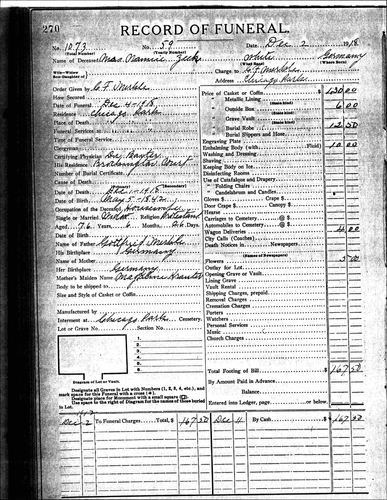 270
RECORD OF FUNERAL.
No. 1073 No. 59 Date, Dec 2 1918
(Total Number) (Yearly Number)
Name of Deceased Mrs. White Germany
(What Race) (Where Born)
Charge to
Order Given by C. F.
How Secured
Date of Funeral Dec 4-1918
Residence Chicago Park
Place of Death
Funeral Services at
Time of Funeral Service
Clergyman
Certifying Physician Dr.
His Residence
Number of Burial Certificate
Cause of Death
Date of Death Dec 1-1918
Date of Birth May 5-1842
Occupation of the Deceased Housewife
Single or Married Religion Protestant
Aged 76 Years, 6 Months, 26 Days.
Date of Birth
Name of Father Gottfried
His Birthplace Germany
Name of Mother
Her Birthplace Germany
Mother's Maiden Name
Body to be shipped to
Size and Style of Casket or Coffin
Manufactured by
Interment at Chicago Park Cemetery.
Lot or Grave No. Section No.
1.
2.
3.
4.
5.
6.
Diagram of Lot or Vault.
Designate all Graves in Lot with Numbers (1, 2, 3, 4, etc.), and
mark space for this Funeral with a cross (+).
Designate place for Monument with a small square (□).
Use space to the right of Diagram for the names of those buried
in Lot.
Price of Casket or Coffin $ 130 00
Metallic Lining
Outside Box 6 00
Grave Vault
(State kind)
Burial Robe 12 50
(State kind)
Burial Slippers and Hose
Engraving Plate
Embalming Body (with Fluid) 10 00
Washing and Dressing
Shaving
Keeping Body on Ice
Disinfecting Rooms
Use of Catafalque and Drapery
" Folding Chairs
" Candelabrum and Candles
Gloves $ Crape $
Door Crape $ Fancy $
Hearse
Carriages to Cemetery @ $
Automobiles to Cemetery @ $
Wagon Deliveries 4 00
City Calls (Coaches)
Death Notices in Newspapers
(Names of Newspapers)
Flowers
Outlay for Lot
Opening Grave or Vault
Lining Grave
Vault Rental
Shipping Charges, prepaid
Removal Charges
Cremation Charges
Porters
Watchers
Personal Services
Music
Church Charges
Total Footing of Bill $ 167 50
By Amount Paid in Advance
Balance
Entered into Ledger, page or below.
Dec 2 To Funeral Charges Total, $ 167 50 Dec 11 By Cash $ 167 50